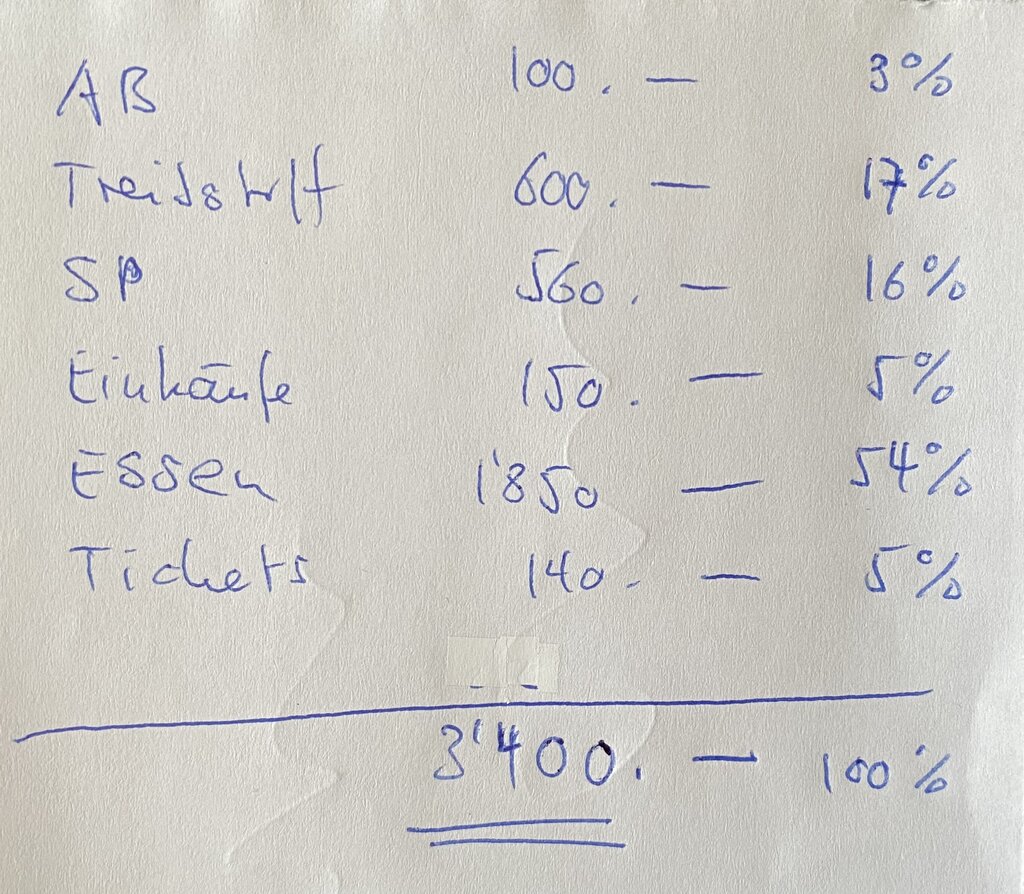 AB 100.— 3%
Treibstoff 600.— 17%
SP 560.— 16%
Einkäufe 150.— 5%
Essen 1'850 — 54%
Tickets 140.— 5%
3'400.— 100%